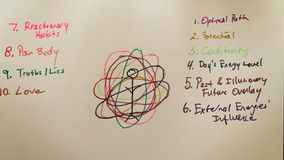 1. Optimal Path
2. Potential
3. Conditioning
4. Day's Energy Level
5. Past & Illusionary
Future Overlay
6. External Energies'
Influence
7. Reactionary
Habits
8. Pain Body
9. Truths/Lies
10. Love